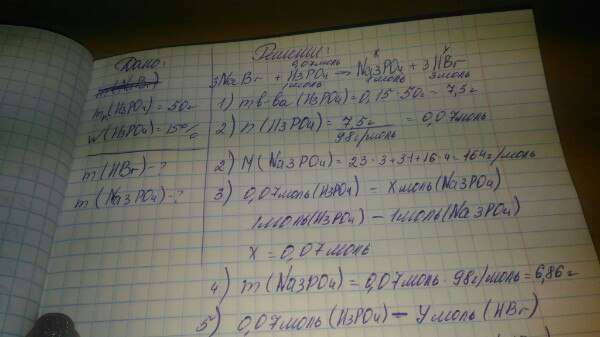 Дано:
m(NaBr)
mр(H3PO4)=50г
w(H3PO4)=15%
m(HBr)-?
m(Na3PO4)-?
Решение:
0,07моль x y
3NaBr + H3PO4 → Na3PO4 + 3HBr
1моль 1моль 3моль
1) mв-ва(H3PO4)=0,15·50г=7,5г
2) n(H3PO4)= 7,5г / 98г/моль = 0,07моль
2) M(Na3PO4)=23·3+31+16·4=164г/моль
3) 0,07моль(H3PO4) – xмоль(Na3PO4)
1моль(H3PO4) – 1моль(Na3PO4)
x = 0,07моль
4) m(Na3PO4)=0,07моль·98г/моль=6,86г
5) 0,07моль(H3PO4) – yмоль(HBr)